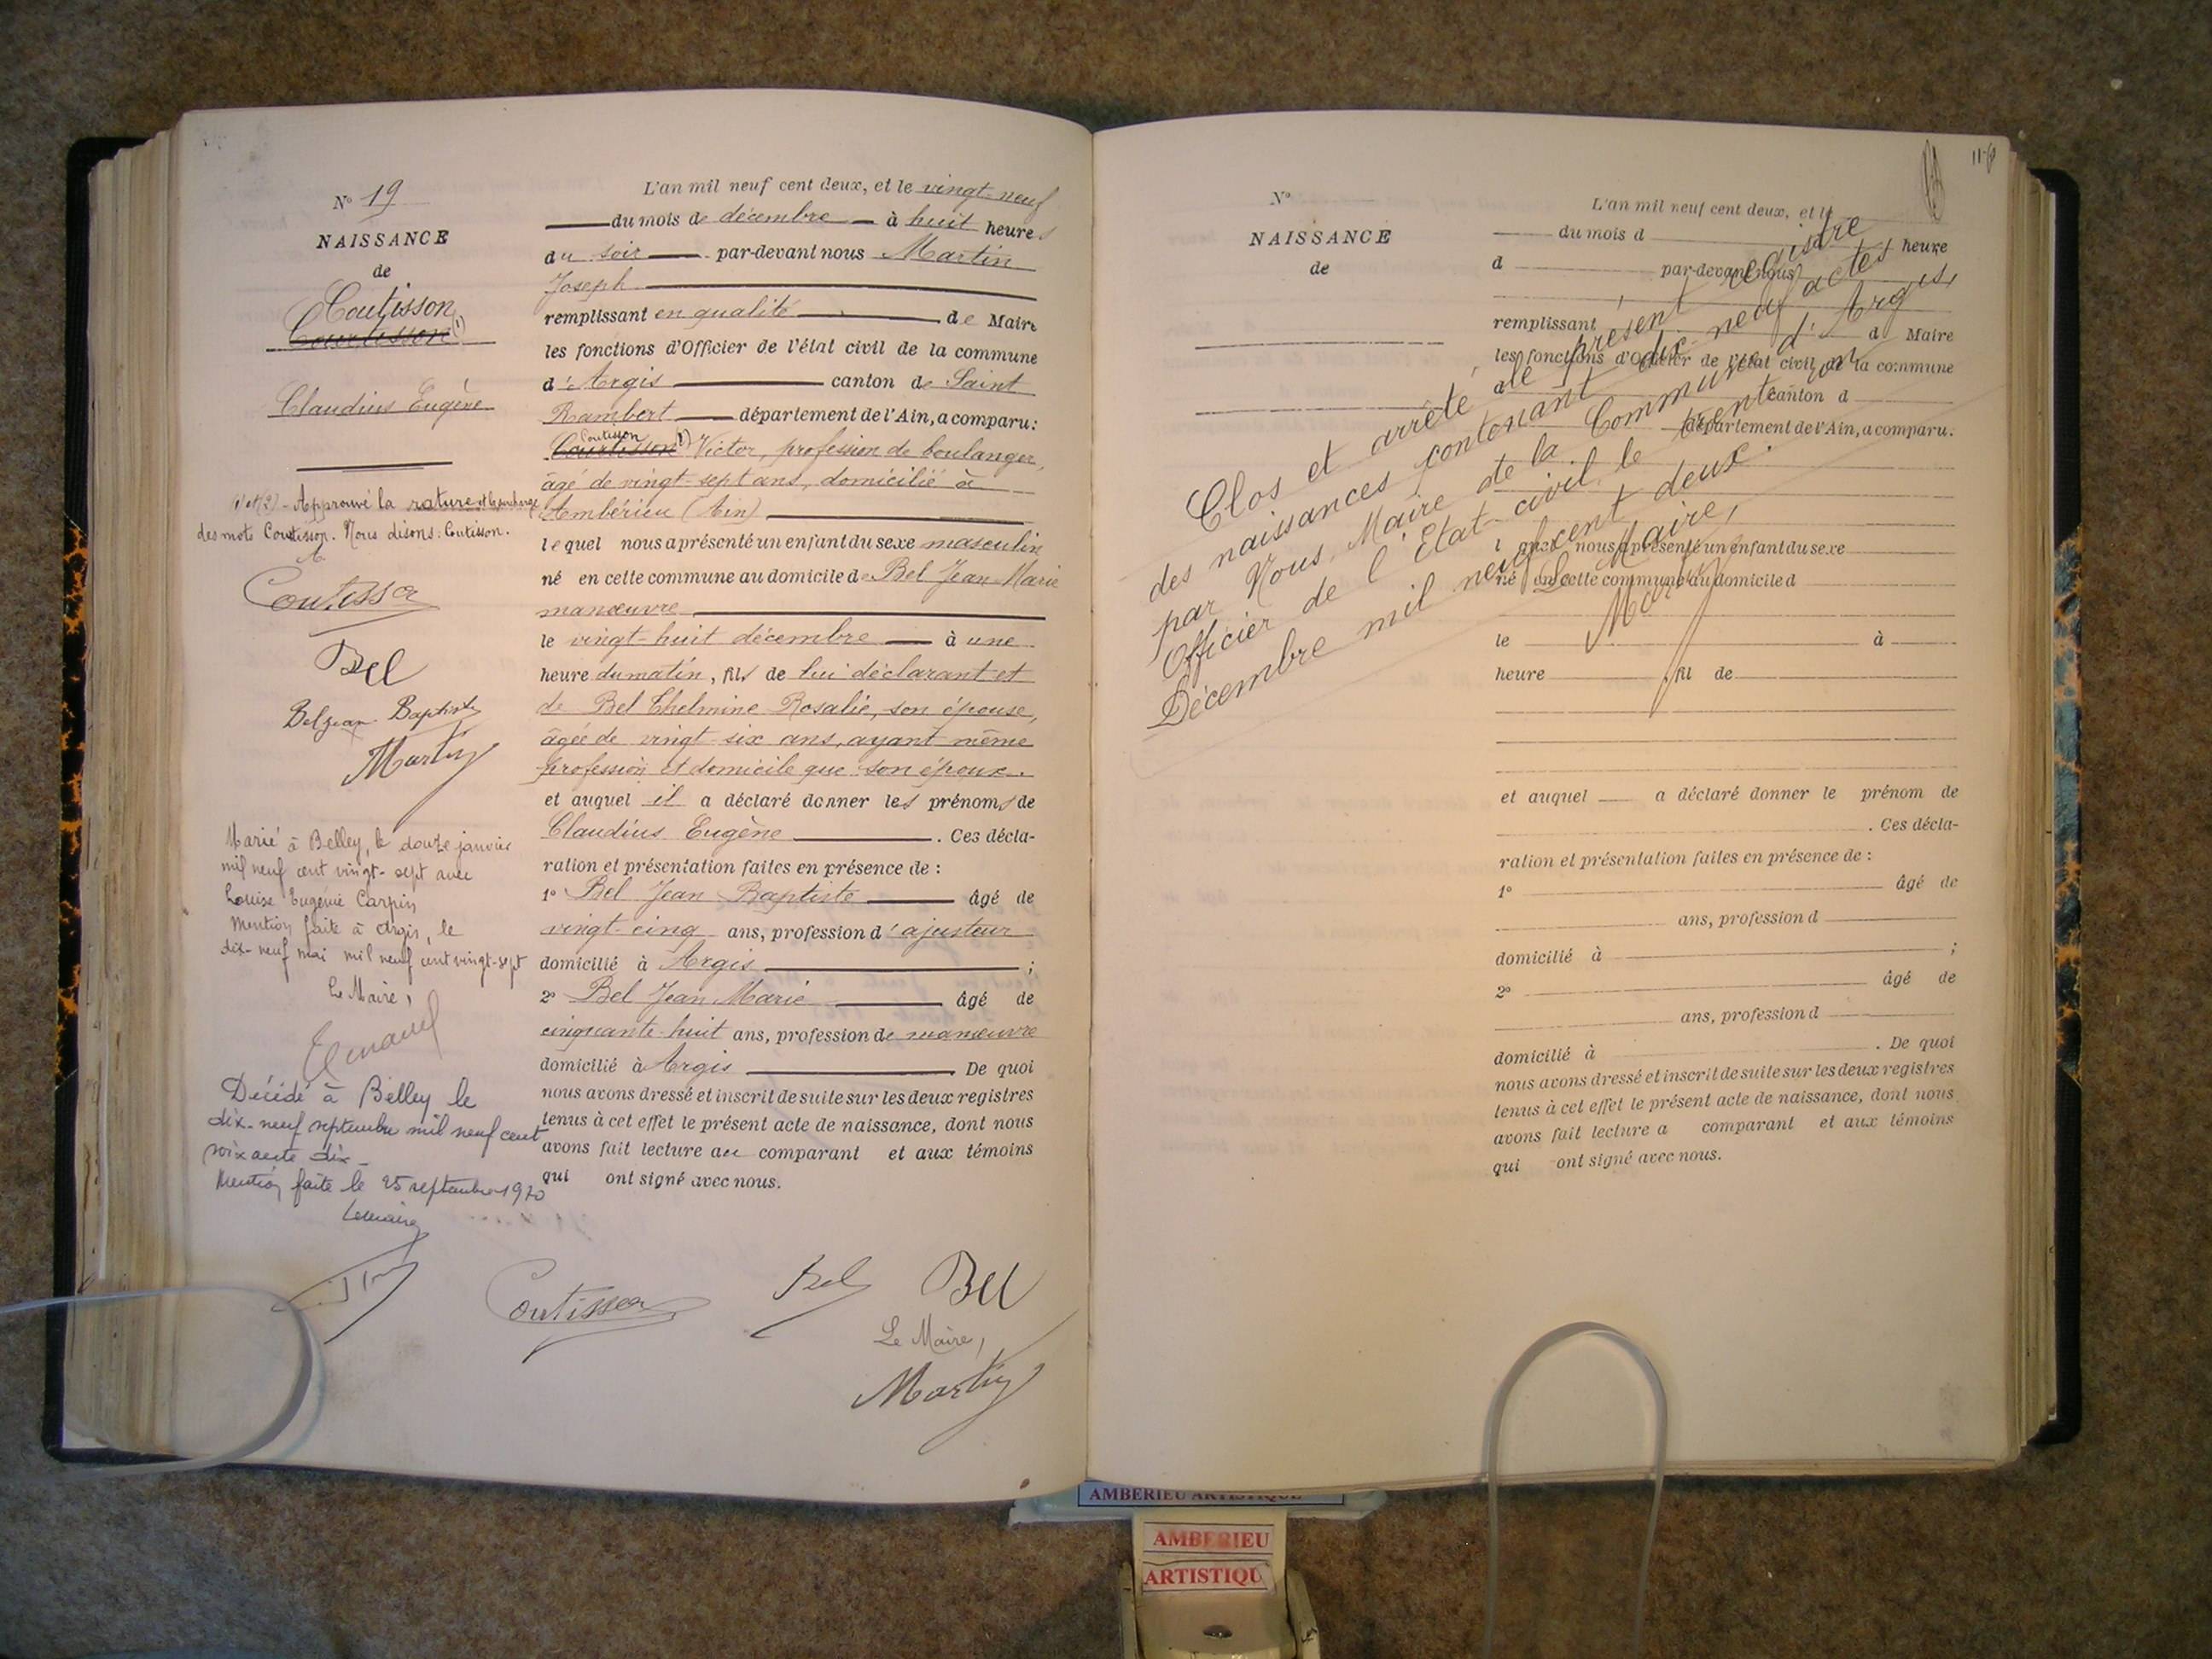 N° 19
NAISSANCE
de
Coutisson
Courtisson (1)
Claudius Eugène
(1 et 2) - Approuvé la rature et la surcharge
des mots Courtisson. Nous disons : Coutisson.
Coutisson
Bel
Bel Jean Baptiste
Martin
Marié à Belley, le douze janvier
mil neuf cent vingt-sept avec
Louise Eugénie Carpin
Mention faite à Argis, le
dix-neuf mai mil neuf cent vingt-sept
Le Maire,
Décédé à Belley le
dix-neuf septembre mil neuf cent
soixante dix -
Mention faite le 25 septembre 1970
Le maire
L'an mil neuf cent deux, et le vingt-neuf
du mois de décembre à huit heures
du soir par-devant nous Martin
Joseph
remplissant en qualité de Maire
les fonctions d'Officier de l'état civil de la commune
d'Argis canton de Saint
Rambert département de l'Ain, a comparu :
Coutisson
Courtisson (2) Victor, profession de boulanger,
âgé de vingt-sept ans, domicilié à
Ambérieu (Ain)
lequel nous a présenté un enfant du sexe masculin
né en cette commune au domicile de Bel Jean Marie
manœuvre
le vingt-huit décembre à une
heure du matin, fils de lui déclarant et
de Bel Thelmine Rosalie, son épouse,
âgée de vingt-six ans, ayant même
profession et domicile que son époux.
et auquel il a déclaré donner les prénoms de
Claudius Eugène . Ces décla-
ration et présentation faites en présence de :
1° Bel Jean Baptiste âgé de
vingt-cinq ans, profession d'ajusteur
domicilié à Argis ;
2° Bel Jean Marie âgé de
cinquante-huit ans, profession de manœuvre
domicilié à Argis De quoi
nous avons dressé et inscrit de suite sur les deux registres
tenus à cet effet le présent acte de naissance, dont nous
avons fait lecture au comparant et aux témoins
qui ont signé avec nous.
Coutisson Bel Bel
Le Maire,
Martin
N°
NAISSANCE
de
L'an mil neuf cent deux, et le
du mois d heure
d par-devant nous
remplissant d Maire
les fonctions d'Officier de l'état civil de la commune
d canton d
département de l'Ain, a comparu.
l quel nous a présenté un enfant du sexe
né en cette commune au domicile d
le à
heure , fil de
et auquel a déclaré donner le prénom de
. Ces décla-
ration et présentation faites en présence de :
1° âgé de
ans, profession d
domicilié à ;
2° âgé de
ans, profession d
domicilié à . De quoi
nous avons dressé et inscrit de suite sur les deux registres
tenus à cet effet le présent acte de naissance, dont nous
avons fait lecture a comparant et aux témoins
qui ont signé avec nous.
Clos et arrêté le présent registre
des naissances contenant dix-neuf actes
par Nous, Maire de la Commune d'Argis,
Officier de l'Etat-civil, le trente un
Décembre mil neuf cent deux.
Le Maire,
Martin
AMBERIEU ARTISTIQUE
AMBERIEU
ARTISTIQU